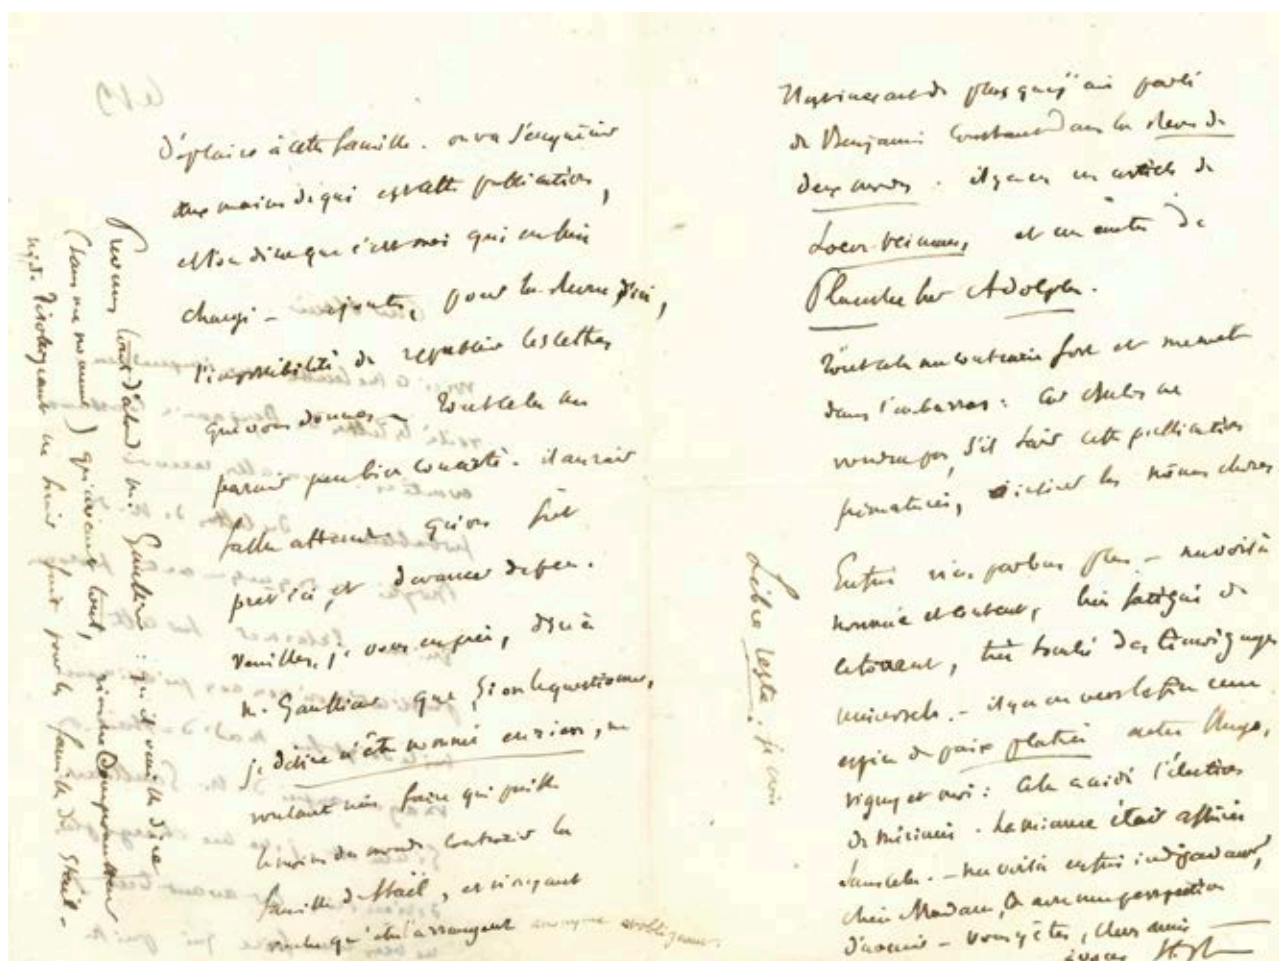 déplaire à cette famille. on va s'enquérir
aux mains de qui est cette publication,
et l'on dira que c'est moi qui en suis
chargé — ajoutez, pour la Revue d'ici,
l'impossibilité de republier les lettres
que vous donnez — Tout cela me
paraît peu bien concerté. il aurait
fallu attendre qu'on fût
prêt ici, et devancer de peu.
Veuillez, je vous en prie, dire à
M. Gaullieur que, si on le questionne,
je désire n'être nommé en rien, ne
voulant rien faire qui puisse
le moins du monde contrarier la
famille de Staël, et n'ayant
Prévenez tout d'abord M. Gaullieur : qu'il veuille dire
(sans me nommer) qui avant tout, rien de compromettant
ni de désobligeant ne sera fait pour la famille de Staël —
de plus que j'ai parlé
de Benjamin Constant dans la Revue des
deux mondes. il y a eu un article de
Loeve-Veimars, et un autre de
Planche sur Adolphe.
Tout cela me contrarie fort et me met
dans l'embarras : car Buloz ne
voudra pas, s'il sait cette publication
prématurée, insérer les mêmes choses
Enfin n'en parlons plus — me voilà
nommé et content, bien fatigué de
ce torrent, très touché des témoignages
universels. — il y a eu vers la fin une
espèce de paix plâtrée entre Hugo,
Vigny et moi : cela a aidé l'élection
de Mérimée. La mienne était assurée
sans cela. — me voilà enfin indépendant,
chère Madame, & avec une perspective
d'avenir — vous y êtes, chers amis —
Libre reste : je vis